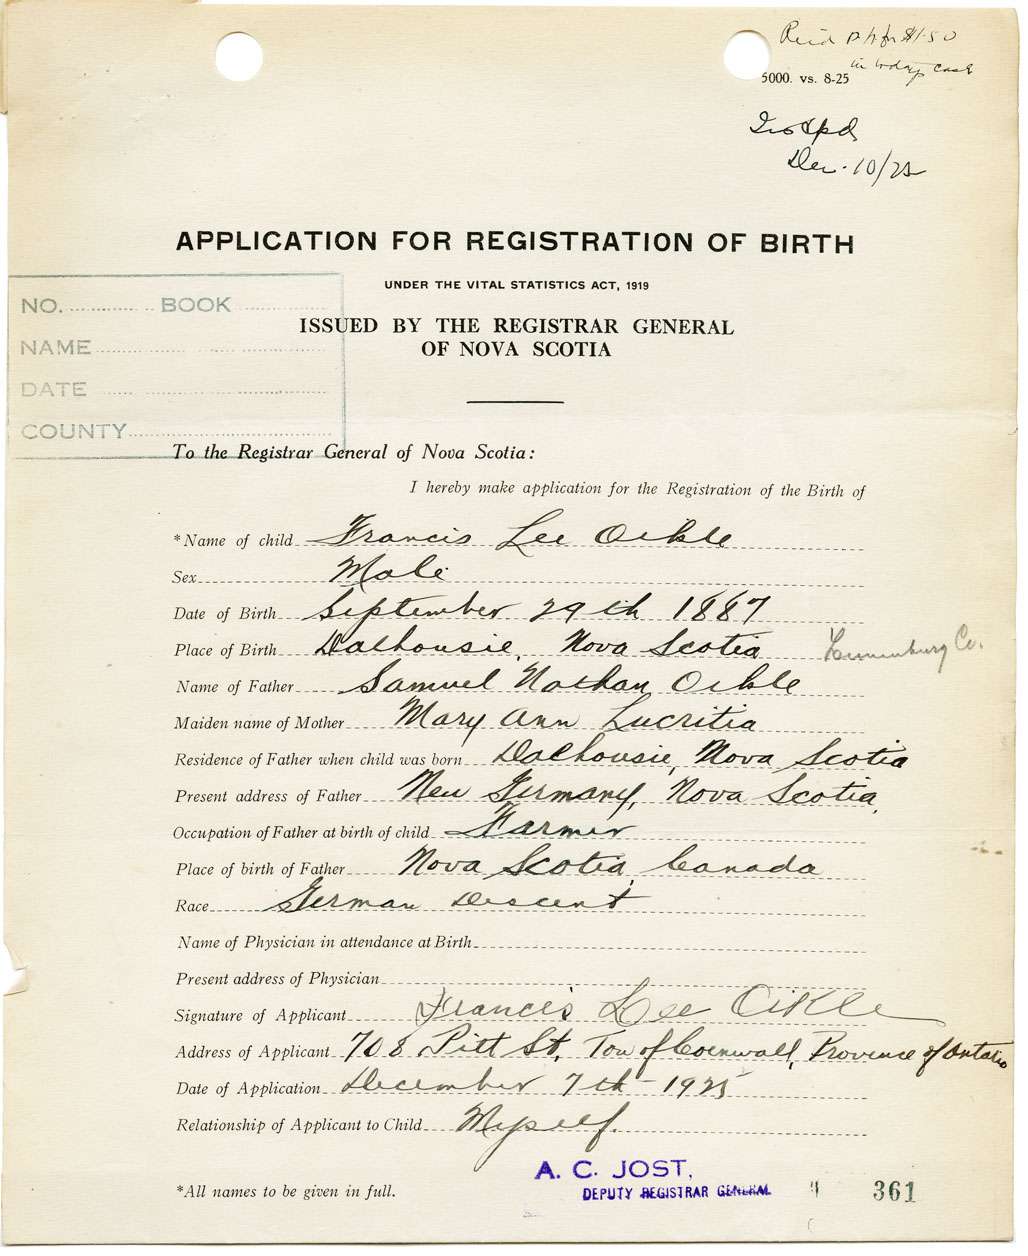 Rec'd p.n. for $1.50
in today's cash
5000. vs. 8-25
Dec. 10/25
APPLICATION FOR REGISTRATION OF BIRTH
UNDER THE VITAL STATISTICS ACT, 1919
NO. BOOK
ISSUED BY THE REGISTRAR GENERAL
NAME
OF NOVA SCOTIA
DATE
COUNTY
To the Registrar General of Nova Scotia:
I hereby make application for the Registration of the Birth of
*Name of child Francis Lee Oikle
Sex Male
Date of Birth September 29th 1887
Place of Birth Dalhousie, Nova Scotia Lunenburg Co.
Name of Father Samuel Nathan Oikle
Maiden name of Mother Mary Ann Lucritia
Residence of Father when child was born Dalhousie, Nova Scotia
Present address of Father New Germany, Nova Scotia,
Occupation of Father at birth of child Farmer
Place of birth of Father Nova Scotia, Canada
Race German Descent
Name of Physician in attendance at Birth
Present address of Physician
Signature of Applicant Francis Lee Oikle
Address of Applicant 708 Pitt St, Tow of Cornwall, Province of Ontario
Date of Application December 7th - 1925
Relationship of Applicant to Child Myself.
A. C. JOST,
DEPUTY REGISTRAR GENERAL
*All names to be given in full.
361